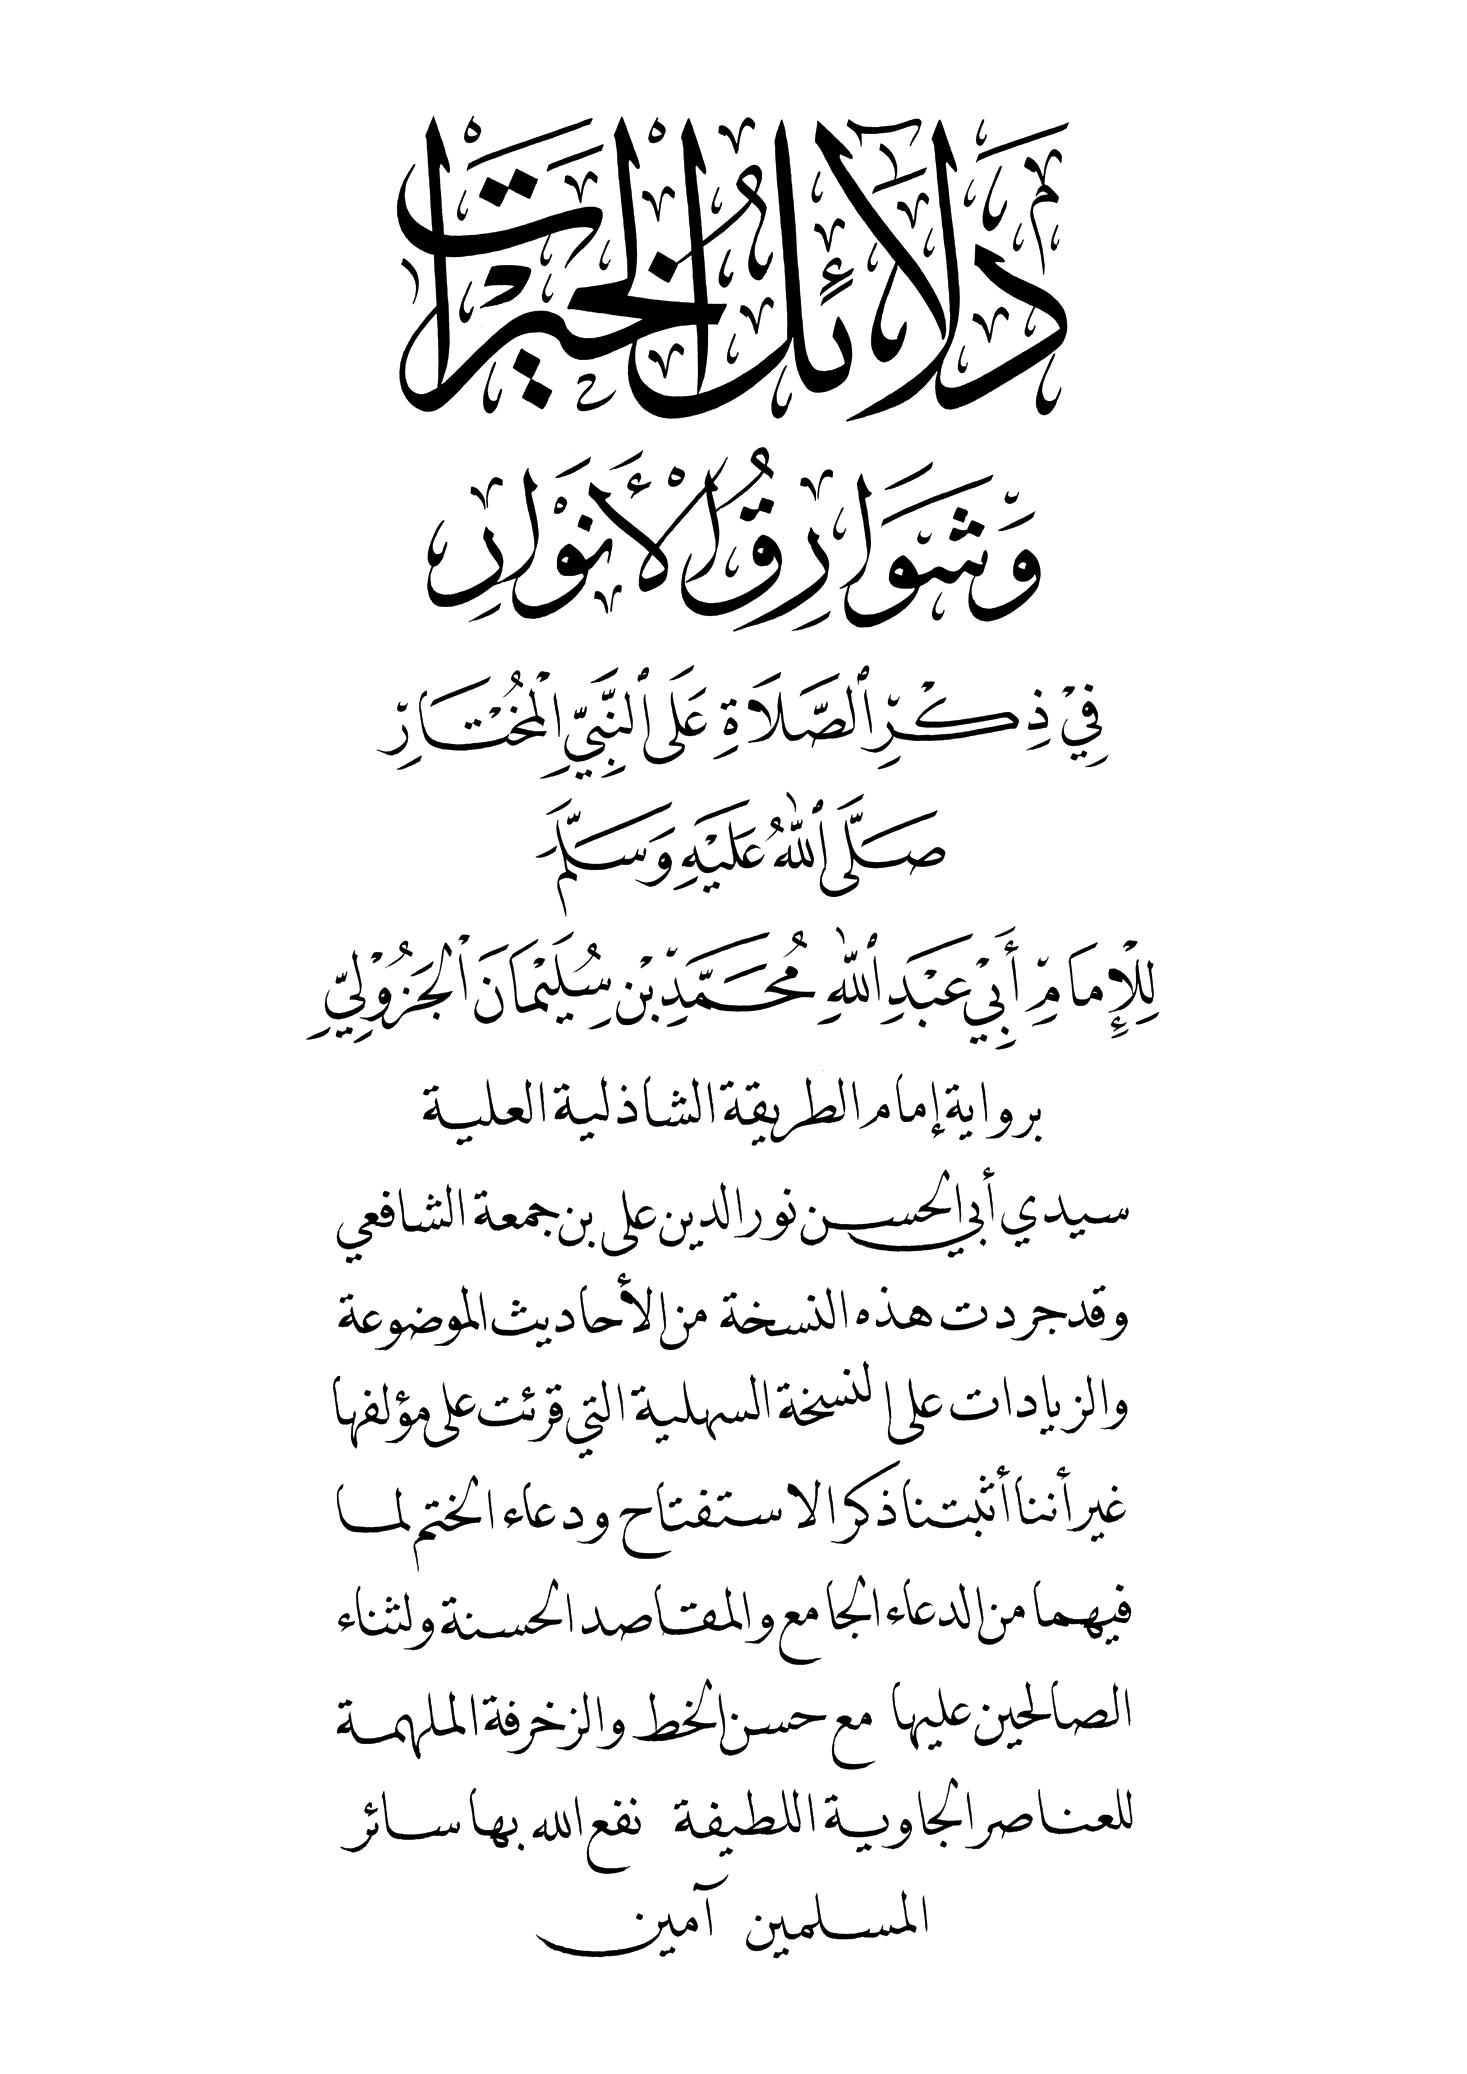 دَلَائِلُ الْخَيْرَاتِ
وَشَوَارِقُ الْأَنْوَارِ
فِيْ ذِكْرِ ٱلصَّلَاةِ عَلَى ٱلنَّبِيِّ الْمُخْتَارِ
صَلَّى ٱللّٰهُ عَلَيْهِ وَسَلَّمَ
لِلْإِمَامِ أَبِيْ عَبْدِ ٱللّٰهِ مُحَمَّدِ بْنِ سُلَيْمَانَ ٱلْجَزُوْلِيِّ
برواية إمام الطريقة الشاذلية العلية
سيدي أبي الحسن نور الدين علي بن جمعة الشافعي
وقد جردت هذه النسخة من الأحاديث الموضوعة
والزيادات على النسخة السهلية التي قرئت على مؤلفها
غير أننا أثبتنا ذكر الاستفتاح ودعاء الختم لما
فيهما من الدعاء الجامع والمقاصد الحسنة ولثناء
الصالحين عليها مع حسن الخط والزخرفة الملهمة
للعناصر الجاوية اللطيفة نفع الله بها سائر
المسلمين آمين